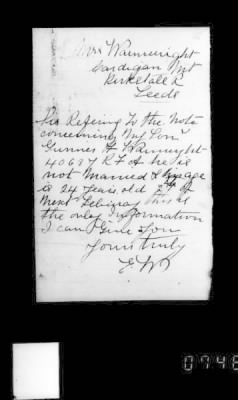 Mrs Wainwright
Cardigan Mnt
Kirkstall R
Leeds
Sir Refering To the Note
concerning My Son
Gunner H Wainwright
40687 R F A he is
not Married & his age
is 24 years old 2nd of
Next Febuary this is
the only Information
I can Give You
Yours truly
E W
0746